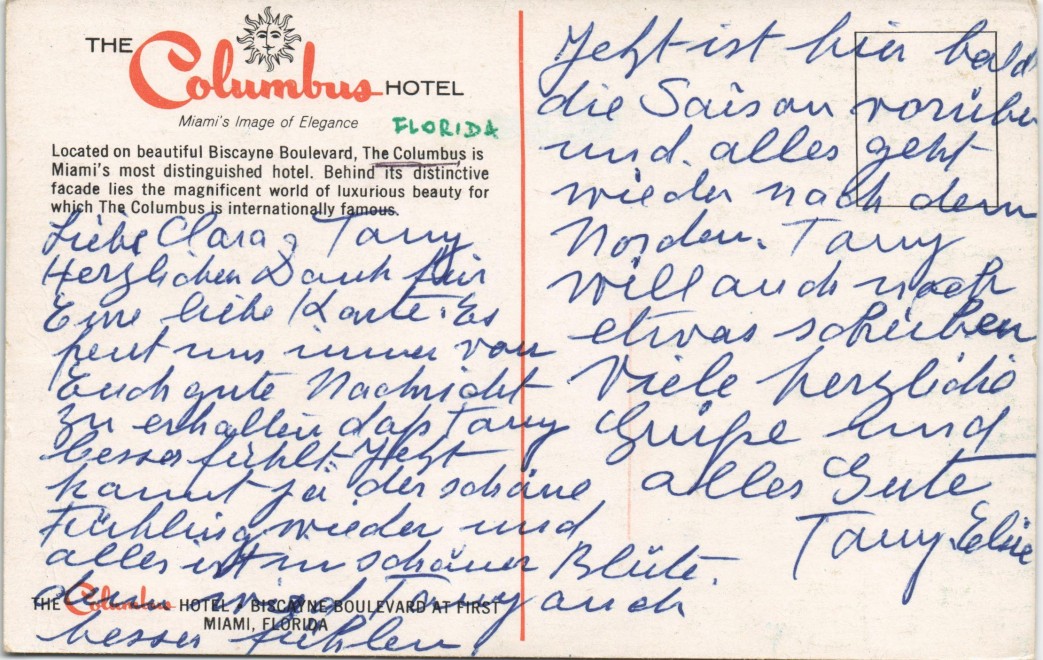 THE Columbus HOTEL
Miami's Image of Elegance
FLORIDA
Located on beautiful Biscayne Boulevard, The Columbus is
Miami's most distinguished hotel. Behind its distinctive
facade lies the magnificent world of luxurious beauty for
which The Columbus is internationally famous.
Liebe Clara, Tony
Herzlichen Dank für
Eure liebe Karte. Es
freut uns immer von
Euch gute Nachricht
zu erhalten daß Tony
besser fühlt. Jetzt
kommt ja der schöne
Frühling wieder und
alles ist in schöner Blüte.
dann wird Tony auch
besser fühlen.
THE Columbus HOTEL • BISCAYNE BOULEVARD AT FIRST
MIAMI, FLORIDA
Jetzt ist hier bald
die Saison vorüber
und alles geht
wieder nach dem
Norden. Tony
will auch noch
etwas schreiben
Viele herzliche
Grüße und
alles Gute
Tony. Elsie